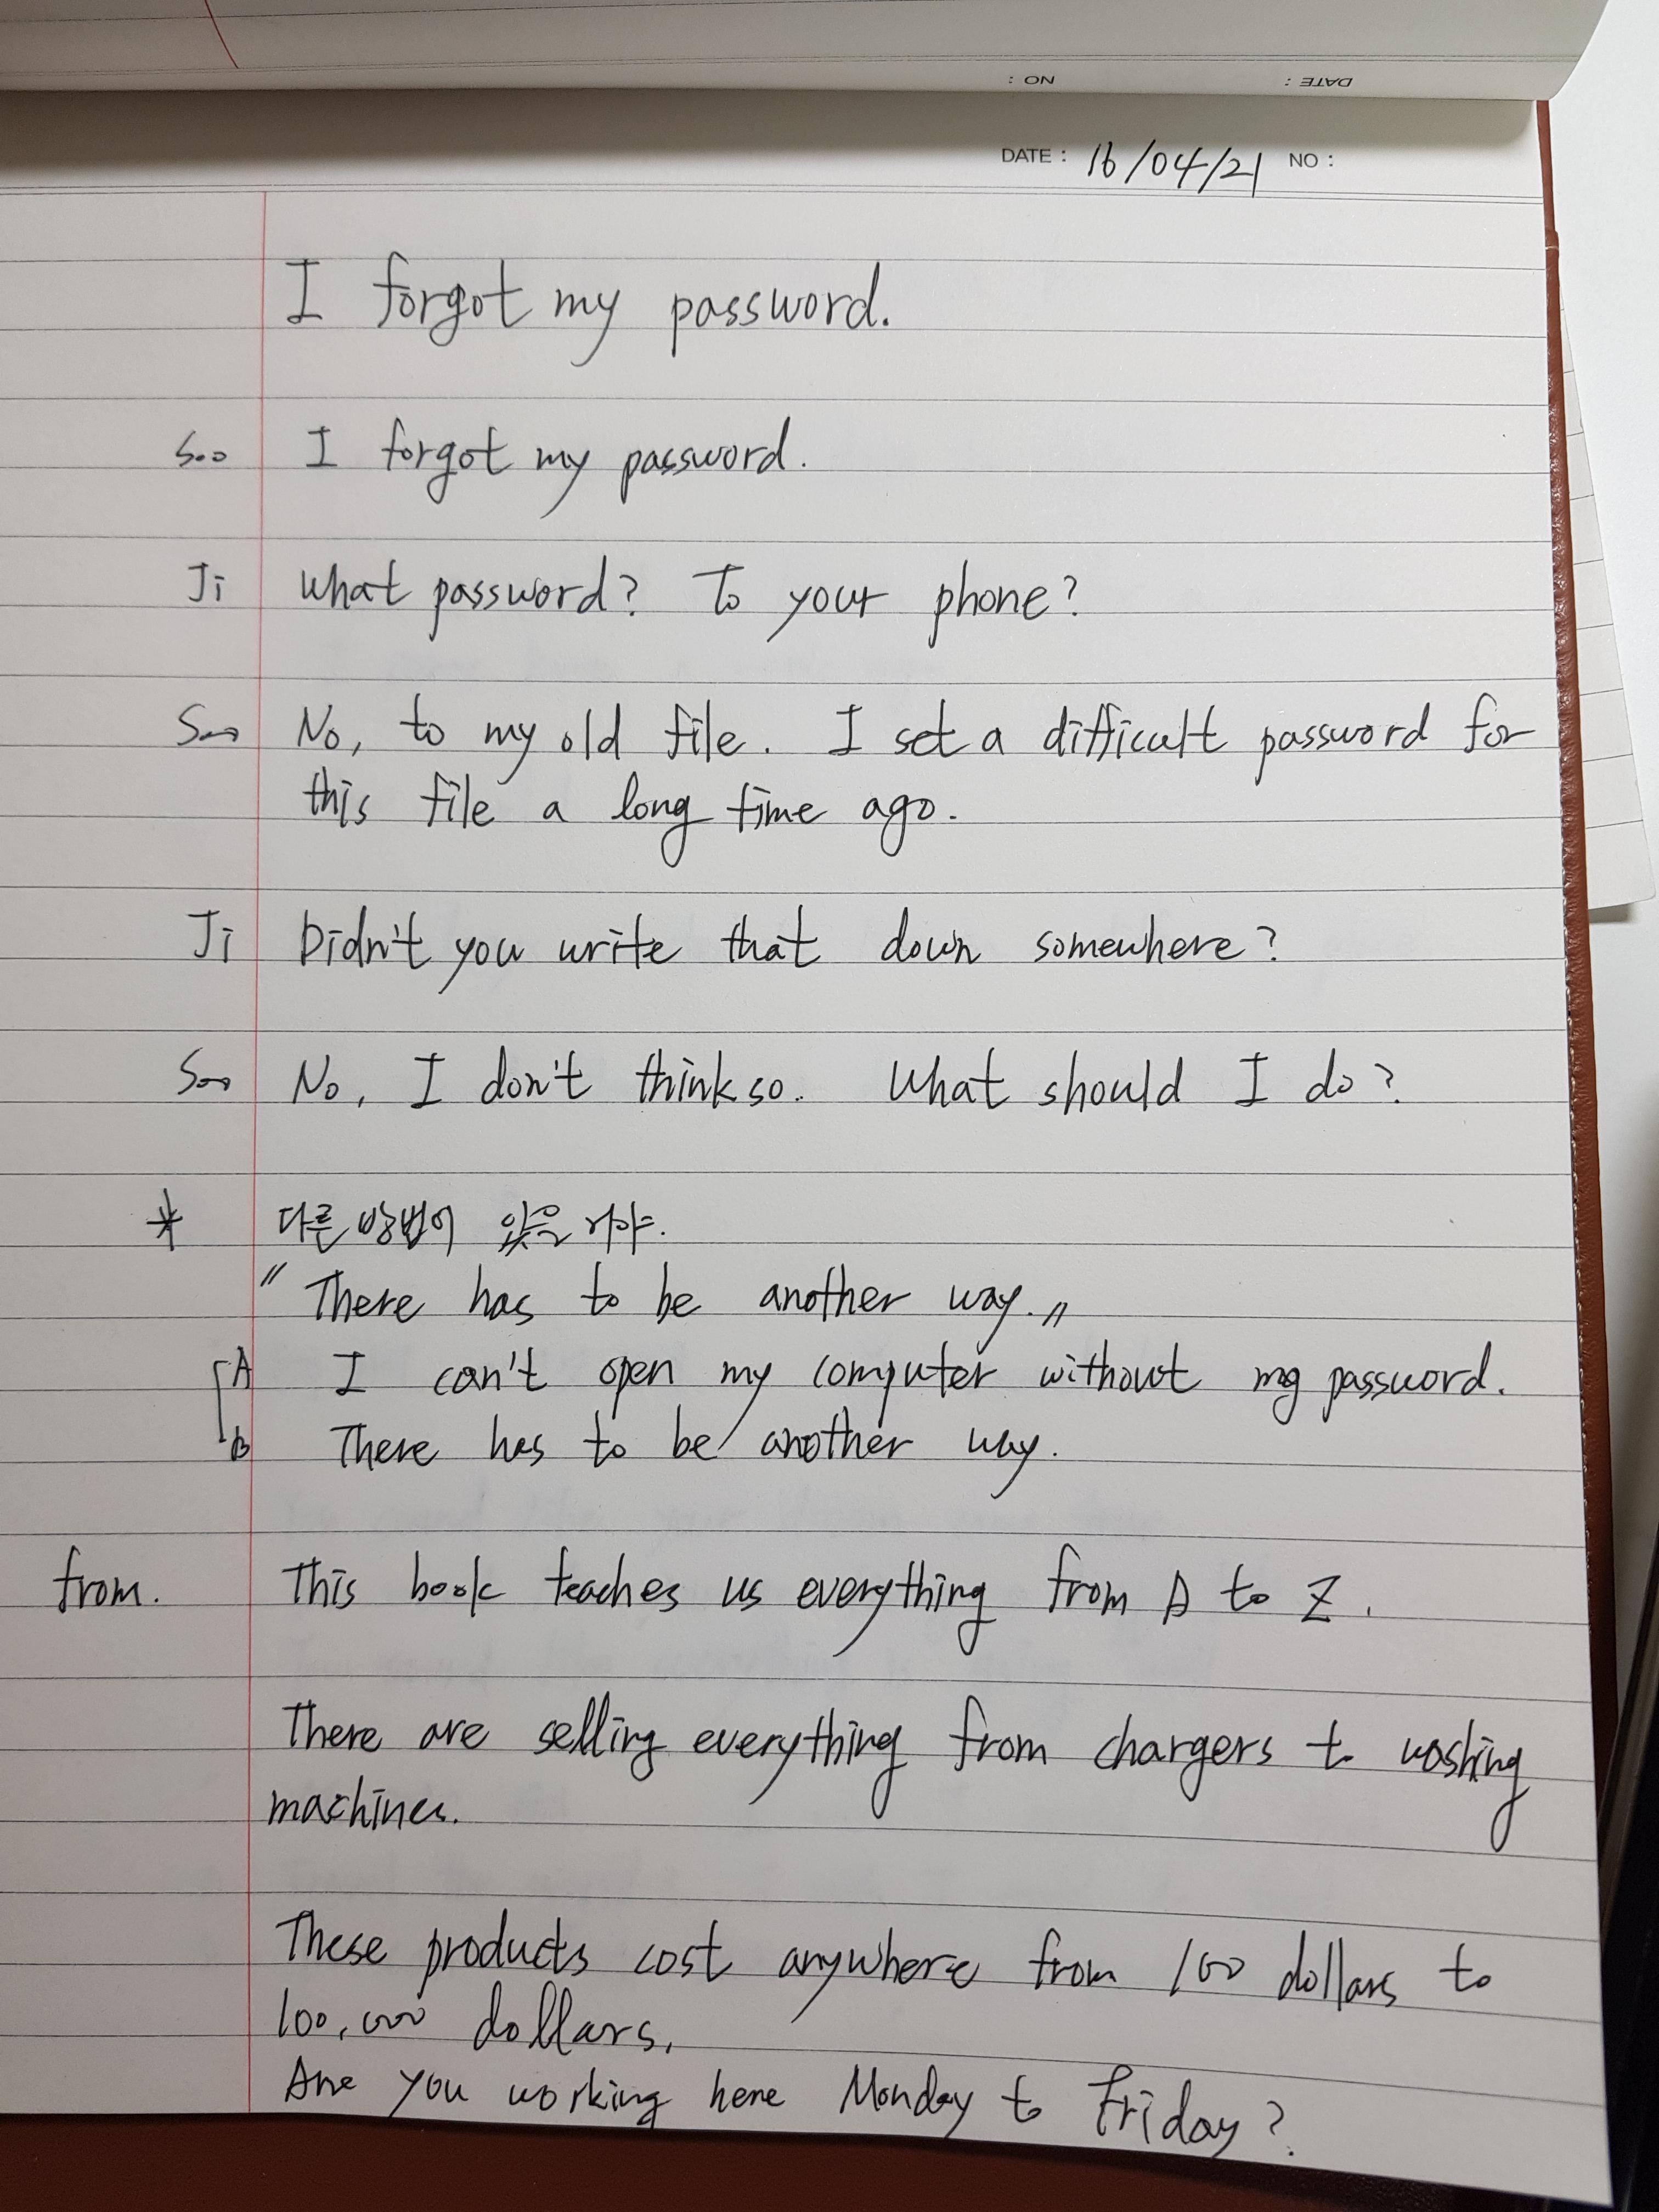 NO :
DATE :
DATE : 16/04/21 NO :
I forgot my password.
Soo I forgot my password.
Ji What password? To your phone?
Soo No, to my old file. I set a difficult password for
this file a long time ago.
Ji Didn't you write that down somewhere?
Soo No, I don't think so. What should I do?
* 다른 방법이 있을 거야.
" There has to be another way. "
A I can't open my computer without my password.
B There has to be another way.
from. This book teaches us everything from A to Z.
There are selling everything from chargers to washing
machines.
These products cost anywhere from 100 dollars to
100,000 dollars.
Are you working here Monday to Friday?